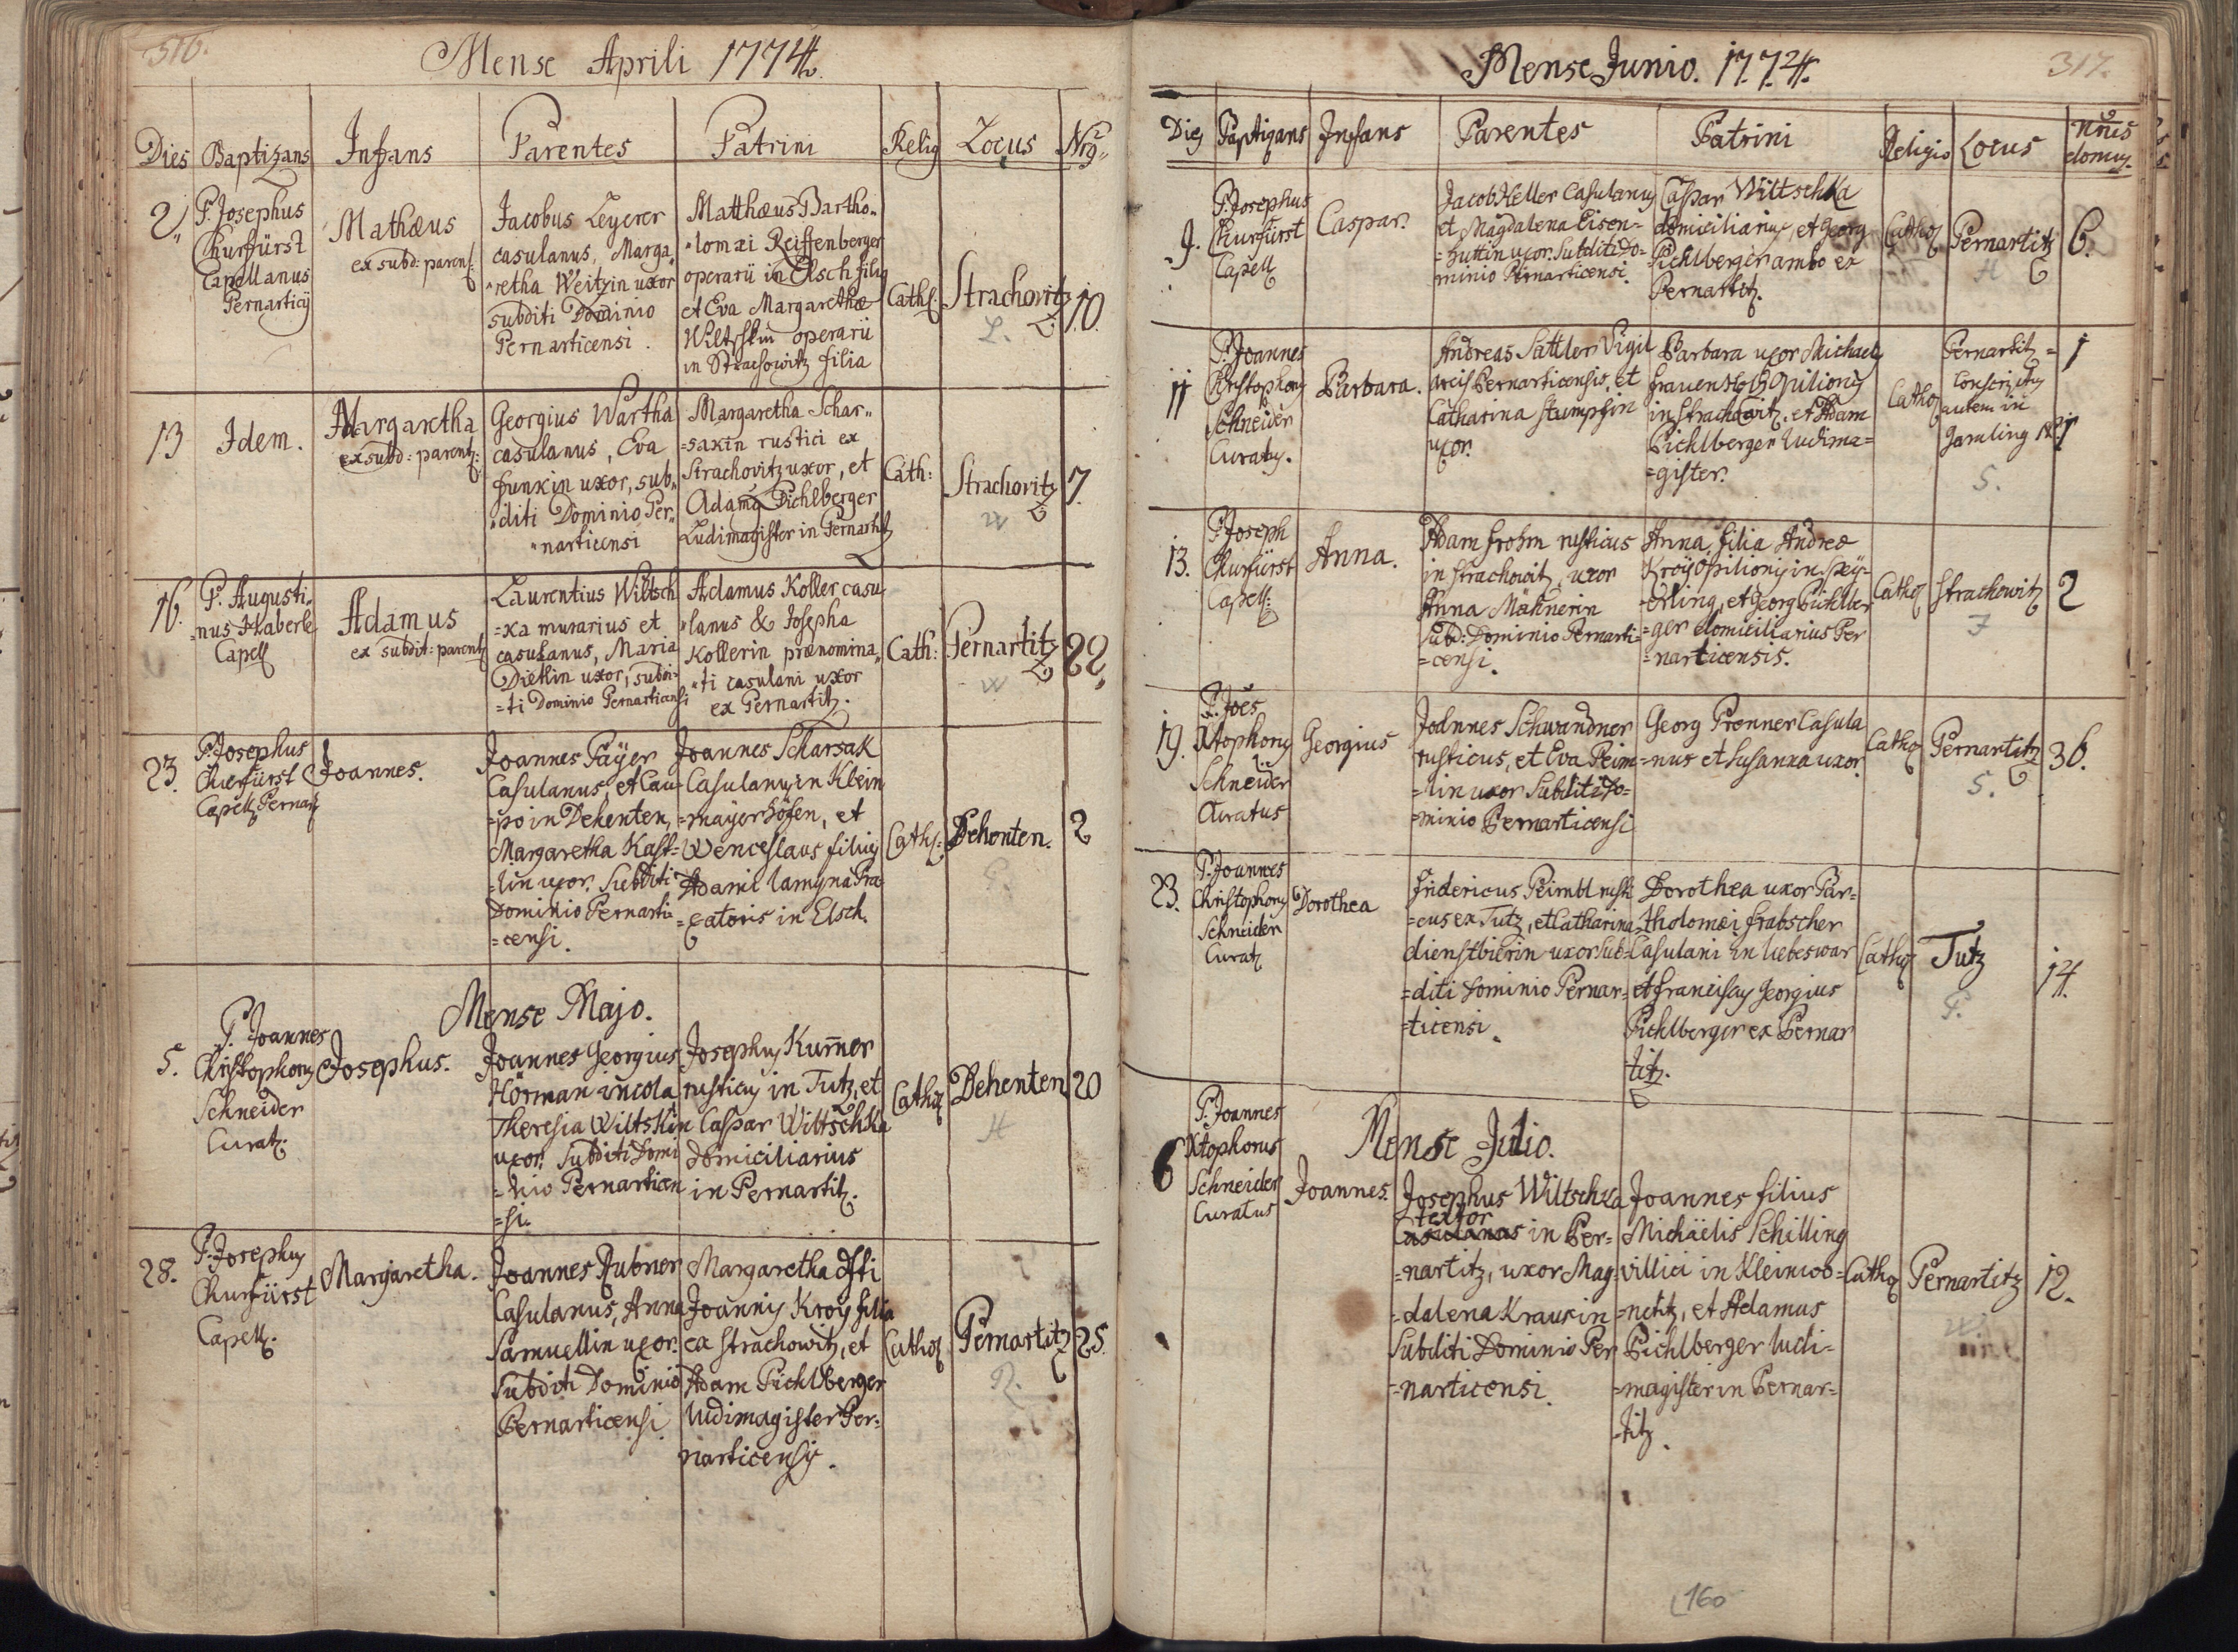 316.
Mense Aprili 1774.
Dies Baptizans Infans Parentes Patrini Relig Locus Nrg
2
P. Josephus
Churfürst
Capellanus
Pernarticÿ
Mathæus
ex subd: parent:
Jacobus Leyerer
casulanus, Marga
"retha Weitzin uxor
subditi Dominio
Pernarticensi.
Matthæus Bartho"
"lomæi Reiffenberger
operarii in Elsch filiq
et Eva Margarethæ
Wiltschkin operarii
in Strachowitz filia
Cath:
Strachovitz
L.
10.
13
Idem.
Margaretha
ex subd: parent:
Georgius Wartha
casulanus, Eva
funkin uxor, sub"
"diti Dominio Per"
"narticensi
Margaretha Schar"
=sakin rustici ex
Strachovitz uxor, et
Adamq Pichlberger
Ludimagister in Pernartitz
Cath:
Strachovitz
W
7.
16.
P. Augusti"
=nus Haberle
Capell
Adamus
ex subdit: parent
Laurentius Wiltsch
=ka murarius et
casulanus, Maria
Dietin uxor, subdi-
=ti Dominio Pernarticensi
Adamus Koller casu
"lanus & Josepha
Kollerin prænomina"
"ti casulani uxor
ex Pernartitz.
Cath:
Pernartitz
W
22,
23.
P: Josephus
Churfürst
Capell: Pernarÿ
Joannes.
Joannes Paÿer
Casulanus, et Cau-
=po in Dehenten,
Margaretha Kast=
=lin uxor. Subditi
Dominio Pernarti
=censi.
Joannes Scharsak
Casulanq in Klein
=maÿerhöfen, et
Wenceslaus filiq
Adami
=catoris in Elsch.
Cath:
Dehenten.
P.
2
Mense Majo.
5.
P. Joannes
Christophorq
Schneider
Curat:
Josephus.
Joannes Georgius
Hörman incola
Theresia Wiltskin
uxor. Subditi Domi
=nio Pernarticen
=si.
Josephq Kum̄er
rusticq in Tutz, et
Caspar Wiltschka
domiciliarius
in Pernartitz.
Cathoq
Dehenten
H
20
28.
P: Josephq
Churfürst
Capell.
Margaretha.
Joannes Rubner
Casulanus, Anna
Samuellin uxor.
Subditi Dominio
Pernarticensi
Margaretha
Joannis Kroÿ filia
ea Strachowitz, et
Adam Pichlberger
ludimagister Per=
narticensis.
Cathoq
Pernartitz
R.
25.
317.
Mense Junio. 1774.
Dies Baptizans Infans Parentes Patrini Religio Locus Nr̄us
domus.
9.
P: Josephus
Churfürst
Capell
Caspar.
Jacob Heller Casulanq
et Magdalena Eisen=
=huttin uxor. Subditi Do=
minio Pernarticensi.
Caspar Wiltschka
domiciliarius, et Georg
Pichlberger ambo ex
Pernartitz.
Cathoq
Pernartitz
H
6.
11
P: Joannes
Christophorq
Schneider
Curatq.
Barbara.
Andreas Sattler Vigil
arcis Pernarticensis, et
Catharina Stumpfin
uxor.
Barbara uxor Michaelis
frauenholtz Opilionis
in Strachowitz, et Adam
Pichlberger Ludima=
=gister.
Cathoq
Pernartitz =
Conscriptq
autem in
Jamling
S.
1
13.
P: Joseph
Churfürst
Capell:
Anna.
Adam frohm rusticus
in Strachowitz, uxor
Anna Mahnerin
Subd: Dominio Pernarti=
=censi.
Anna filia Andreæ
Kroÿ Opilionis in Speÿ=
=erling, et Georg Pichlber
=ger domiciliarius Per
=narticensis.
Cathoq
Strachowitz
F
2
19.
P. Joēs
Xtophorq
Schneider
Curatus
Georgius
Joannes Schwandner
rusticus, et Eva Peim=
=lin uxor Subditi Do=
=minio Pernarticensi
Georg Prenner Casula
=nus et Susanna uxor
Cathoq
Pernartitz
S.
36.
23.
P. Joannes
Christophorq
Schneider
Curatq
Dorothea
fridericus Peimbl rusti
=cus ex Tutz, et Catharina
dienstbierin uxor sub=
=diti Dominio Pernar=
=ticensi.
Dorothea uxor Bar=
=tholomæi frabscher
Casulani in liebeswar
et franciscq Georgius
Pichlberger ex Pernar
titz.
Cathoq
Tutz
P.
14.
Mense Julio.
6
P. Joannes
Xtophorus
Schneider
Curatus
Joannes.
Josephus Wiltschka
textor
Casulanus in Per=
=nartitz, uxor Mag=
=dalena Krausin
Subditi Dominio Per
=narticensi.
Joannes filius
Michäelis Schilling
villici in Kleinwo=
=netitz, et Adamus
Pichlberger ludi=
=magister in Pernar=
=titz.
Cathoq
Pernartitz
W.
12.
160